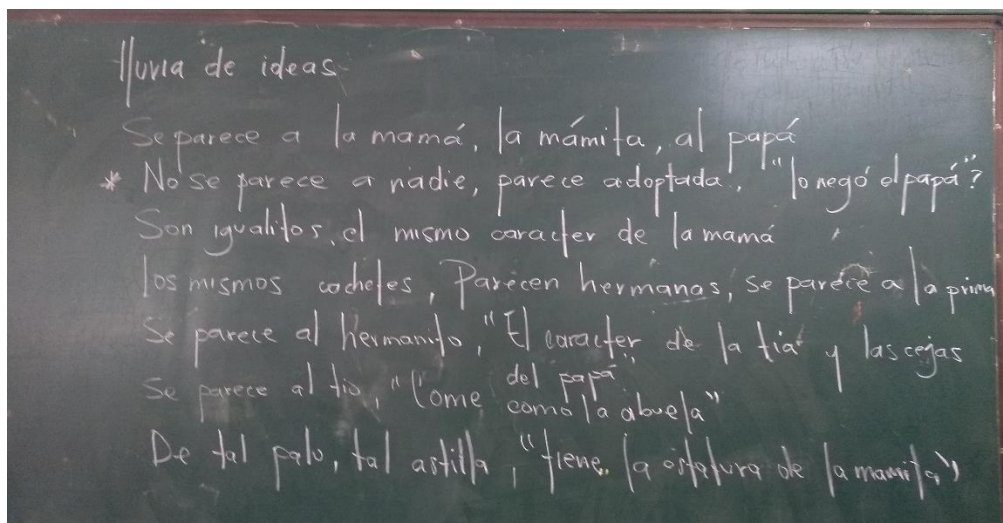 lluvia de ideas
Se parece a la mamá, la mámita, al papá
* No se parece a nadie, parece adoptada, "lo negó el papá"?
Son igualitos, el mismo caracter de la mamá
los mismos cachetes, Parecen hermanas, se parece a la prima
Se parece al hermanito, "El caracter de la tia" y las cejas
del papá
Se parece al tio, "Come como la abuela"
De tal palo, tal astilla, "tiene la estatura de la mamita"